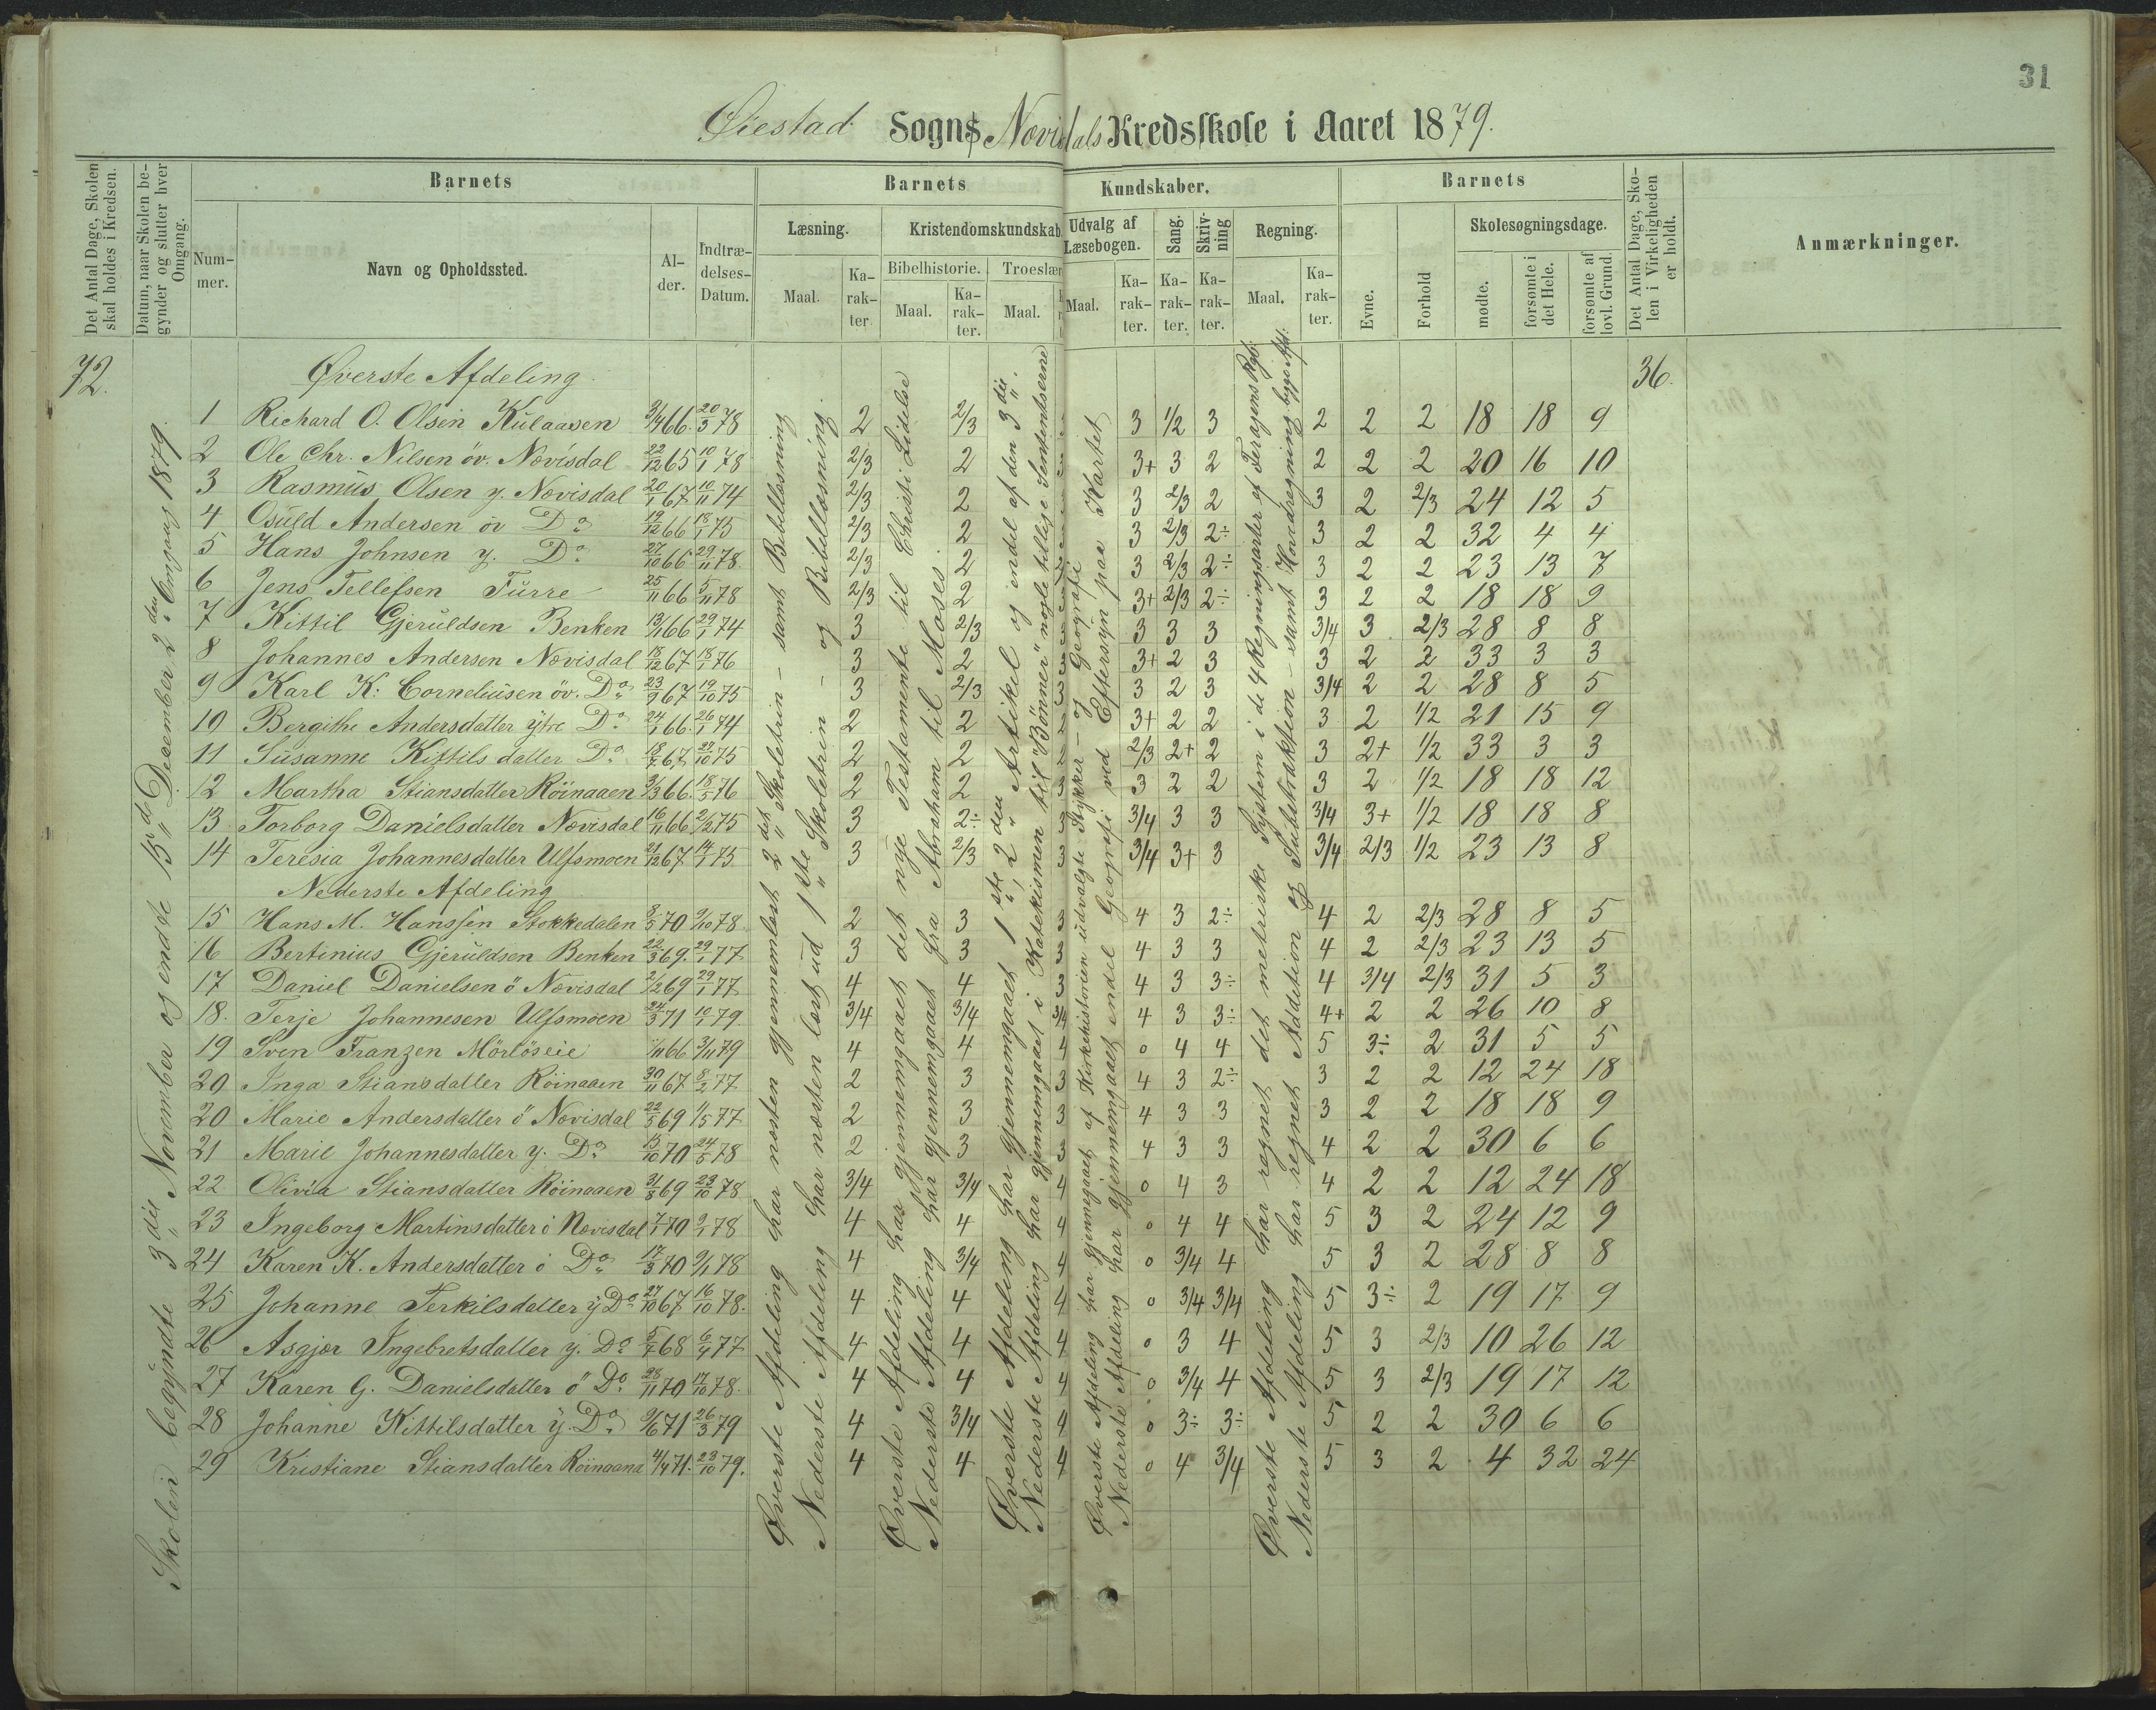 31
Øiestad Sogns Nævisdals Kredsskole i Aaret 1879.
Det Antal Dage, Skolen skal holdes i Kredsen.
Datum, naar Skolen begynder og slutter hver Omgang.
Barnets
Barnets Kundskaber.
Barnets
Det Antal Dage, Skolen i Virkeligheden er holdt.
Anmærkninger.
Nummer.
Navn og Opholdssted.
Alder.
Indtrædelses-Datum.
Læsning.
Kristendomskundskab.
Udvalg af Læsebogen.
Sang.
Skrivning
Regning.
Evne.
Forhold
Skolesøgningsdage.
Bibelhistorie.
Troeslær
Maal. Karakter. Maal. Karakter. Maal. Maal. Karakter. Karakter. Karakter. Maal. Karakter.
mødte.
forsømte i det Hele.
forsømte af lovl. Grund.
72.
36.
Skolen begyndte 3die November og endte 15de December 2den Omgang 1879.
Øverste Afdeling
1 Richard O. Olsen Kulaasen 3/4 66. 20/3 78 2 2/3 3 1/2 3 2 2 2 18 18 9
2 Ole Chr. Nilsen öv. Nævisdal 22/12 65 10/1 78 2/3 2 3+ 3 2 2 2 2 20 16 10
3 Rasmus Olsen y. Nævisdal 20/1 67 10/11 74 2/3 2 3 2/3 2 3 2 2/3 24 12 5
4 Osuld Andersen öv Do 19/12 66 18/1 75 2/3 2 3 2/3 2÷ 3 2 2 32 4 4
5 Hans Johnsen y. Do 27/10 66 29/11 78 2/3 2 3 2/3 2÷ 3 2 2 23 13 7
6 Jens Tellefsen Furre 25/11 66 5/11 78 2/3 2 3+ 2/3 2÷ 3 2 2 18 18 9
7 Kittil Gjeruldsen Benken 13/1 66 29/1 74 3 2/3 3 3 3 3 3/4 3 2/3 28 8 8
8 Johannes Andersen Nævisdal 18/12 67 18/1 76 3 2 3 3+ 2 3 3 2 2 33 3 3
9 Karl K. Corneliusen öv. Do 23/9 67 19/10 75 3 2/3 3 3 2 3 3/4 2 2 28 8 5
10 Bergithe Andersdatter ytre Do 24/1 66. 26/1 74 2 2 2 3+ 2 2 3 2 1/2 21 15 9
11 Susanne Kittilsdatter Do 18/7 67 27/10 75 2 2 2 2/3 2+ 2 3 2+ 1/2 33 3 3
12 Martha Stiansdatter Röinaaen 3/3 66. 18/5 76 2 2 3 3 2 2 3 2 1/2 18 18 12
13 Torborg Danielsdatter Nævisdal 16/11 66 2/2 75 3 2÷ 3 3/4 3 3 3/4 3+ 1/2 18 18 8
14 Teresia Johannesdatter Ulfsmoen 21/12 67 14/1 75 3 2/3 3 3/4 3+ 3 3/4 2/3 1/2 23 13 8
Nederste Afdeling
15 Hans M. Hanssen Stokkedalen 8/5 70 9/10 78 2 3 3 4 3 2÷ 4 2 2/3 28 8 5
16 Bertinius Gjeruldsen Benken 22/3 69. 29/1 77 3 3 3 4 3 3 4 2 2/3 23 13 5
17 Daniel Danielsen ö Nævisdal 2/12 69 29/1 77 4 4 3 4 3 3÷ 4 3/4 2/3 31 5 3
18. Terje Johannesen Ulfsmoen 24/3 71 10/1 79. 3/4 3/4 3/4 4 3 3÷ 4+ 2 2 26 10 8
19 Sven Franzen Mörlöseie 1/11 66 3/11 79 4 4 4 0 4 4 5 3÷ 2 31 5 5
20 Inga Stiansdatter Röinaaen 30/11 67 8/2 77 2 3 3 4 3 2÷ 3 2 2 12 24 18
20 Marie Andersdatter ö Nævisdal 22/3 69 1/5 77 2 3 3 4 3 3 3 2 2 18 18 9
21 Marie Johannesdatter y. Do 15/10 70 24/5 78 2 3 3 4 3 3 4 2 2 30 6 6
22 Olivia Stiansdatter Röinaaen 31/3 69 23/10 78 3/4 3/4 4 0 4 3 4 2 2 12 24 18
23 Ingeborg Martinsdatter ö Nævisdal 7/1 70 9/1 78 4 4 4 0 4 4 5 3 2 24 12 9
24 Karen K. Andersdatter ö Do 17/3 70 9/1 78 4 3/4 4 0 3/4 4 5 3 2 28 8 8
25 Johanne Terkilsdatter y Do 27/10 67 16/10 78. 4 4 4 0 3/4 3/4 5 3÷ 2 19 17 9
26 Asgjær Ingebretsdatter y. Do 5/7 68 6/4 77 4 4 4 0 3 4 5 3 2/3 10 26 12
27 Karen G. Danielsdatter ö Do 28/11 70 17/10 78. 4 4 4 0 3/4 4 5 3 2/3 19 17 12
28 Johanne Kittilsdatter y. Do 9/6 71 26/3 79 4 3/4 4 0 3÷ 3÷ 5 2 2 30 6 6
29 Kristiane Stiansdatter Röinaana 4/4 71. 23/10 79. 4 4 4 0 4 3/4 5 3 2 4 32 24
Øverste Afdeling har næsten gjennemlæst 2det Skoletrin – samt Bibellæsning
Nederste Afdeling har næsten læst ud 1ste Skoletrin – og Bibellæsning.
Øverste Afdeling har gjennemgaaet det nye Testamente til Christi Lidelse
Nederste Afdeling har gjennemgaaet fra Abraham til Moses.
Øverste Afdeling har gjennemgaaet 1ste, 2den Artikel og endel af den 3die.
Nederste Afdeling har gjennemgaaet i Katekismen til "Bönner" nogle tillige Sententserne
Øverste Afdeling har gjennemgaaet af Kirkehistorien udvalgte Stykker – og Geografi
Nederste Afdeling har gjennemgaaet endel Geografi ved Eftersyn paa Kartet
Øverste Afdeling har regnet det metriske System i de 4 Regningsarter af Feragens Rgb.
Nederste Afdeling har regnet Addition og Substraktion – samt Hovedregning begge Afd.